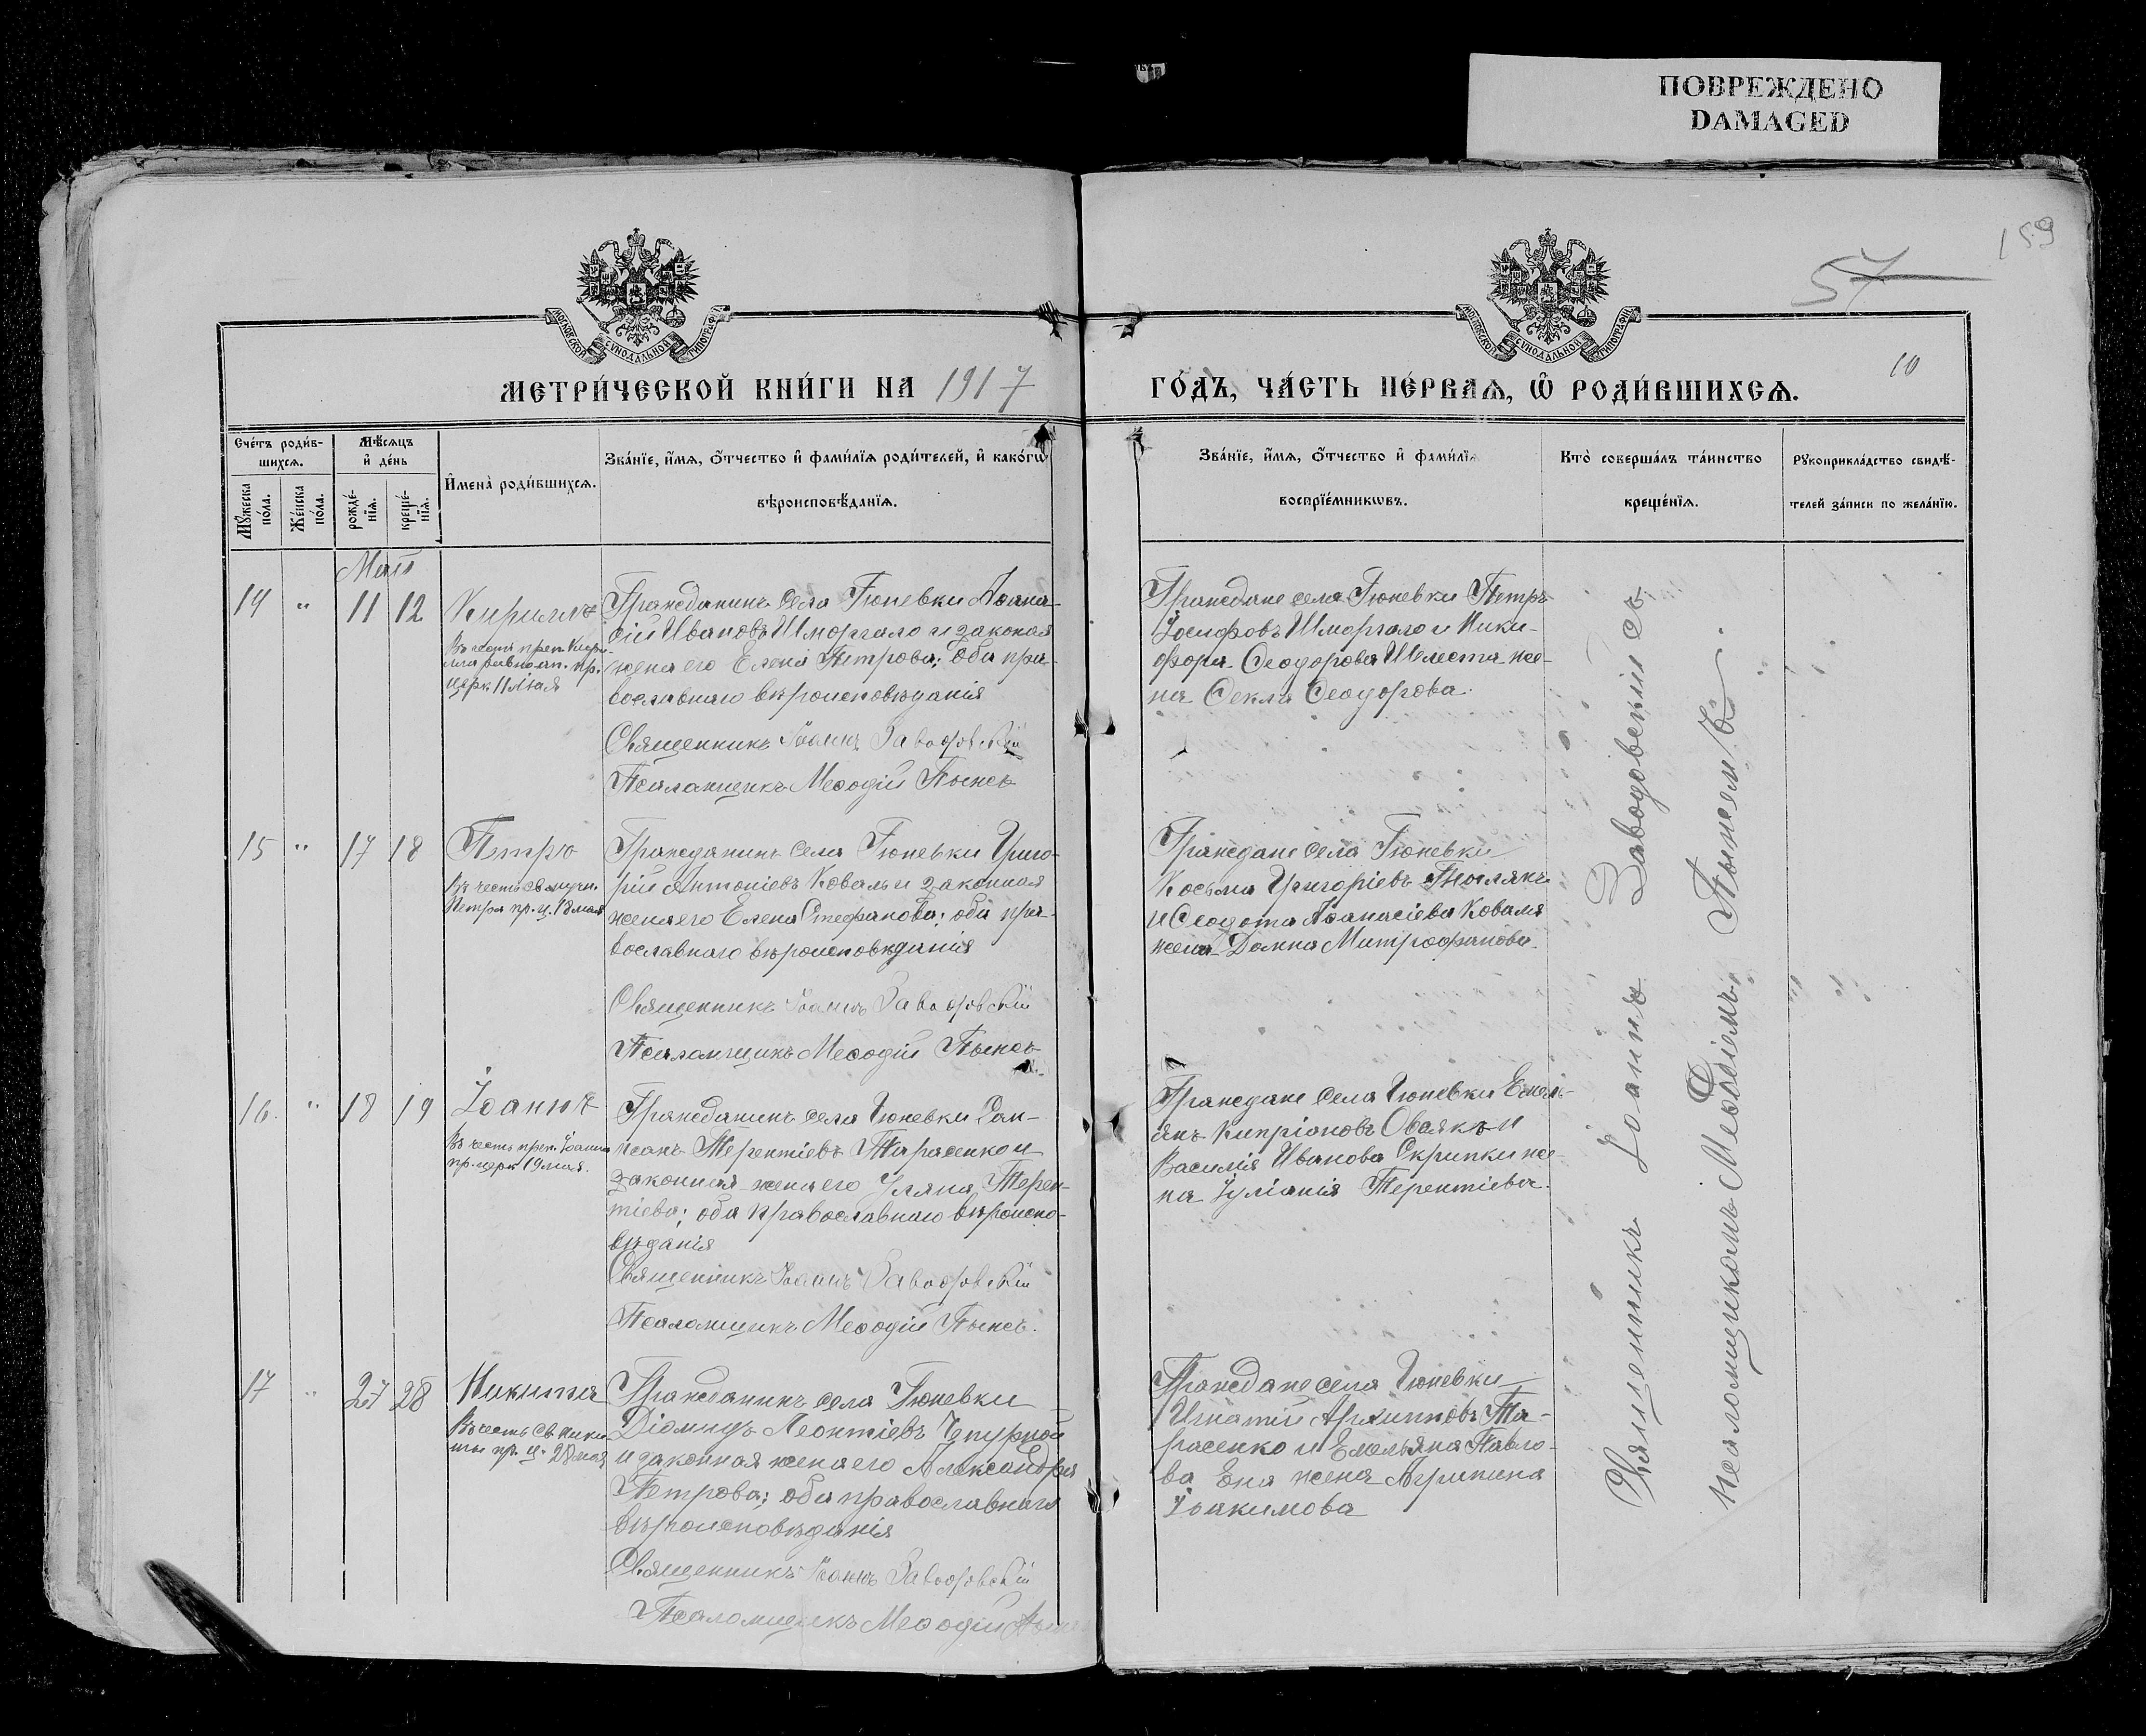 ПОВРЕЖДЕНО
DAMAGED
159
57
10
МОСКОВСКОЙ СѴНОДАЛЬНОЙ ТИПОГРАФІИ
МОСКОВСКОЙ СѴНОДАЛЬНОЙ ТИПОГРАФІИ
МЕТРИ́ЧЕСКОЙ КНИ́ГИ НА 1917
ГО́ДЪ, ЧА́СТЬ ПЕ́РВАѦ, Ѽ РОДИ́ВШИХСѦ.
Сче́тъ роди́в-
шихсѧ.
Мꙋ́жеска по́ла.
Же́нска по́ла.
Мѣ́сѧцъ
и҆ де́нь
рожде́-
нїѧ.
креще́-
нїѧ.
И҆мена̀ роди́вшихсѧ.
Зва́нїе, и҆́мѧ, ѻ҆́тчество и҆ фами́лїѧ роди́телей, и҆ како́гѡ
вѣроисповѣ́данїѧ.
Зва́нїе, и҆́мѧ, ѻ҆́тчество и҆ фами́лїѧ
воспрїе́мникѡвъ.
Кто̀ соверша́лъ та́инство
креще́нїѧ.
Рꙋкоприкла́дство свидѣ́-
телей за́писи по жела́нїю.
Май
14 " 11 12 Кириллъ
Въ честь преп. Кири-
лла равноап. пр.
церк 11 мая
Гражданинъ села Гюневки Аѳана-
сій Ивановъ Шморгало и законая
жена его Елена Петрова; оба пра-
вославнаго вѣроисповѣданія
Священникъ Іоаннъ Заводовскій
Псаломщикъ Меѳодій Пынсъ
Граждане села Гюневки Петръ
Іосифовъ Шморгало и Ники-
фора Ѳеодорова Шлеста же-
на Ѳекла Ѳеодорова.
15 " 17 18 Петръ
Въ честь св. мучн.
Петра пр. ц. 18 мая
Гражданинъ села Гюневки Григо-
рій Антоніевъ Коваль и законная
жена его Елена Стефанова; оба пра-
вославнаго вѣроисповѣданія
Священникъ Іоаннъ Заводовскій
Псаломщикъ Меѳодій Пынсъ
Граждане села Гюневки
Косьма Григоріевъ
и Ѳеодота Аѳанасіева Коваля
жена Домна Митрофанова.
16. " 18 19 Іоаннъ
Въ честь преп. Іоанна
пр. церк 19 мая.
Гражданинъ села Гюневки
Терентіевъ Тарасенко и
законная жена его Уляна Терен-
тіева; оба православнаго вѣроиспо-
вѣданія
Священникъ Іоаннъ Заводовскій
Псаломщикъ Меѳодій Пынсъ.
Граждане села Гюневки Емель-
янъ Кипріановъ и
Василія Иванова Скрипки же-
на Іуліанія Терентіева.
17 " 27 28 Никита
Въ честь Св. Ники-
ты пр. ц. 28 мая
Гражданинъ села Гюневки
Діомидъ Леонтіевъ Чепурной
и законная жена его Александра
Петрова; оба православнаго
вѣроисповѣданія
Священникъ Іоаннъ Заводовскій
Псаломщикъ Меѳодій
Граждане села Гюневки
Игнатій Архиповъ Та-
расенко и Емельяна Павло-
ва жена Агрипина
Іоакимова
Священникъ Іоаннъ Заводовскій съ
псаломщикомъ Меѳодіемъ Пынсемъ.